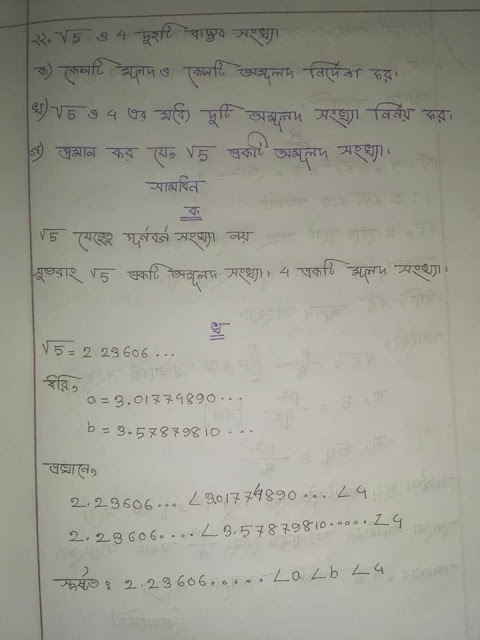 ২২. √5 ও 4 দুইটি বাস্তব সংখ্যা।
ক) কোনটি মূলদ ও কোনটি অমূলদ নির্দেশ কর।
খ) √5 ও 4 এর মধ্যে দুটি অমূলদ সংখ্যা নির্ণয় কর।
গ) প্রমান কর যে, √5 একটি অমূলদ সংখ্যা।
সমাধান
ক
√5 যেহেতু পূর্নবর্গ সংখ্যা নয়
সুতরাং √5 একটি অমূলদ সংখ্যা। 4 একটি মূলদ সংখ্যা।
খ
√5 = 2.23606...
ধরি,
a = 3.01774890...
b = 3.57879810...
এখানে,
2.23606... ∠3.01774890... ∠4
2.23606.... ∠3.57879810..... ∠4
স্পষ্টত: 2.23606..... ∠a ∠b ∠4